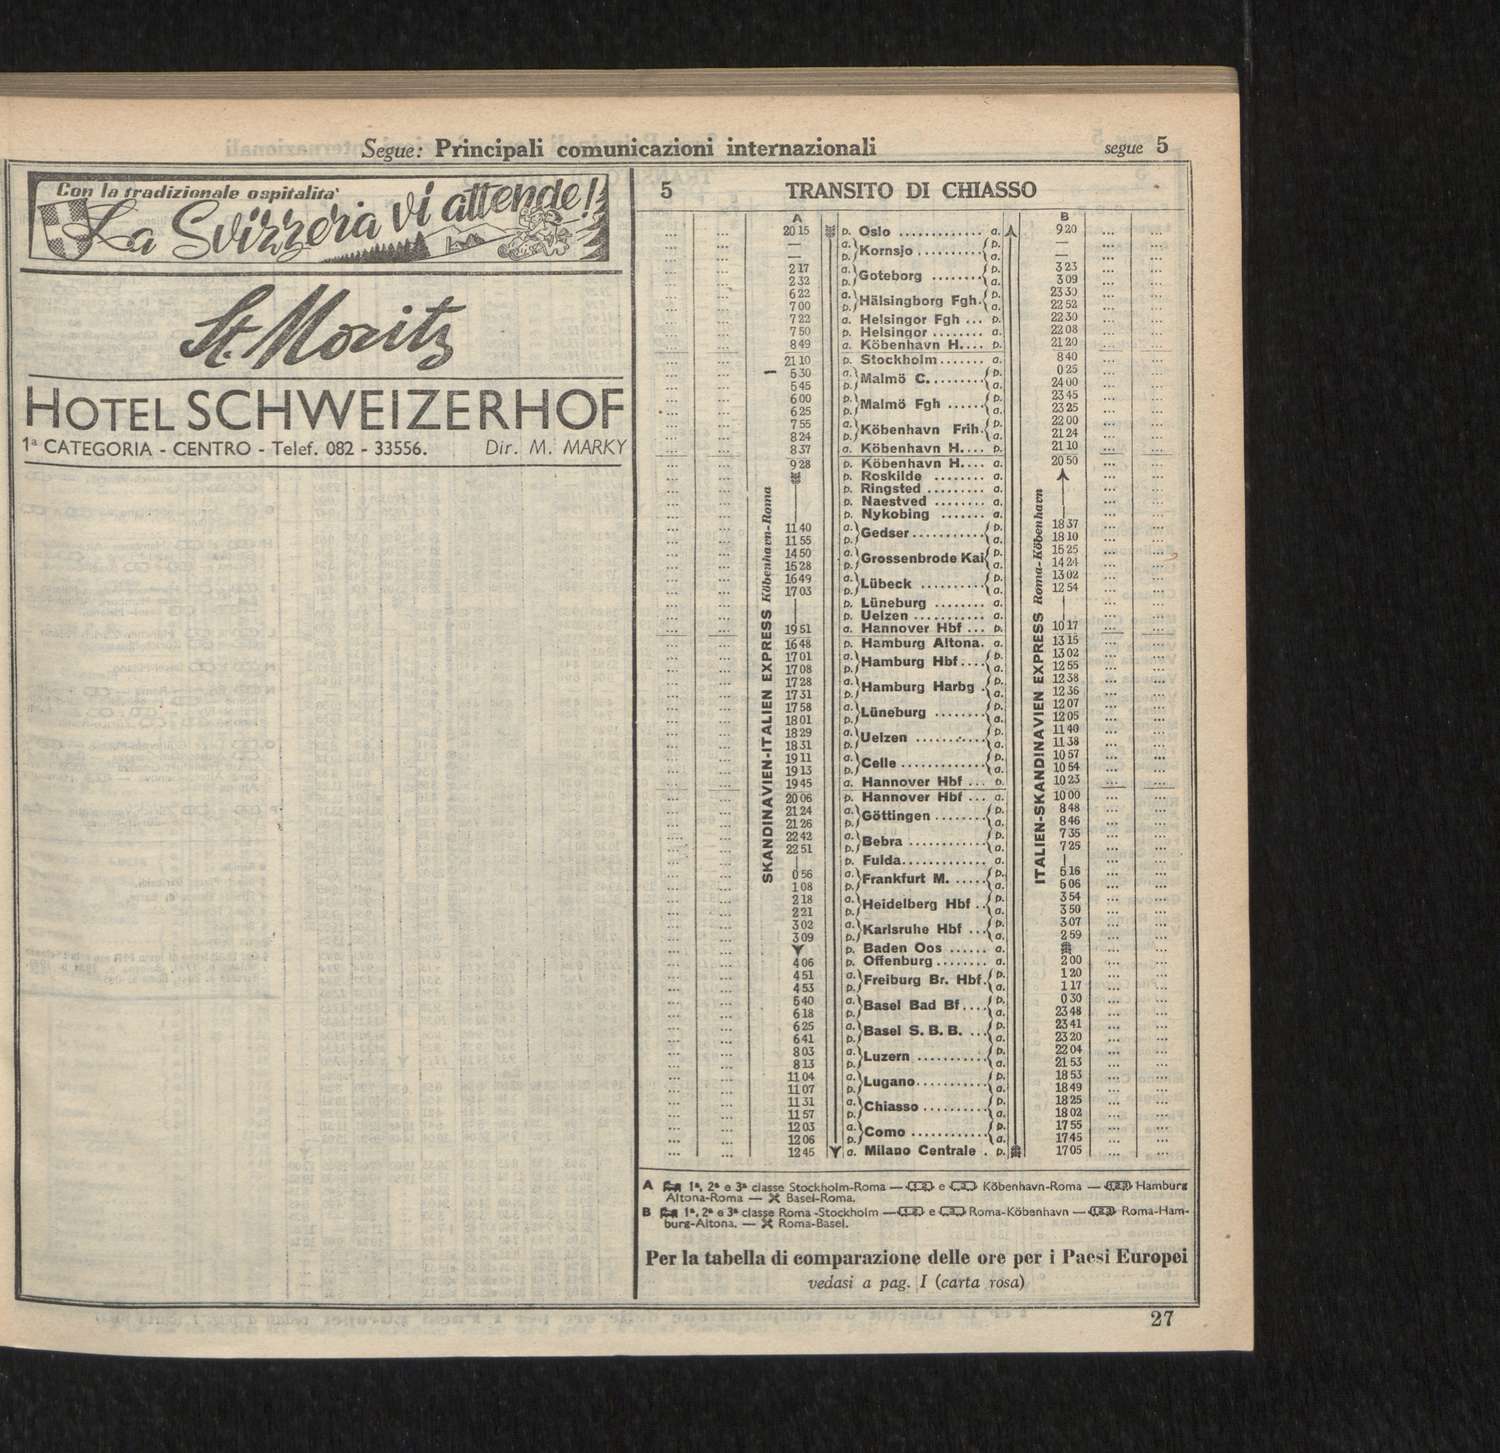 Segue: Principali comunicazioni internazionali
segue 5
Con la tradizionale ospitalita'
La Svizzera vi attende!
St. Moritz
HOTEL SCHWEIZERHOF
1ª CATEGORIA - CENTRO - Telef. 082 - 33556. Dir. M. MARKY
5 TRANSITO DI CHIASSO
A B
20 15 p. Oslo ............. a. 9 20
— a. Kornsjo .......... p. —
— p. a. —
2 17 a. Goteborg ........ p. 3 23
2 32 p. a. 3 09
6 22 a. Hälsingborg Fgh. p. 23 30
7 00 p. a. 22 52
7 22 a. Helsingor Fgh ... p. 22 30
7 50 p. Helsingor ........ a. 22 08
8 49 a. Köbenhavn H.... p. 21 20
21 10 p. Stockholm....... a. 8 40
5 30 a. Malmö C......... p. 0 25
5 45 p. a. 24 00
6 00 a. Malmö Fgh ...... p. 23 45
6 25 p. a. 23 25
7 55 a. Köbenhavn Frih. p. 22 00
8 24 p. a. 21 24
8 37 a. Köbenhavn H.... p. 21 10
9 28 p. Köbenhavn H.... a. 20 50
p. Roskilde ........ a.
p. Ringsted ......... a.
p. Naestved ........ a.
p. Nykobing ....... a.
11 40 a. Gedser........... p. 18 37
11 55 p. a. 18 10
14 50 a. Grossenbrode Kai p. 15 25
15 28 p. a. 14 24
16 49 a. Lübeck .......... p. 13 02
17 03 p. a. 12 54
p. Lüneburg ........ a.
p. Uelzen ........... a.
19 51 a. Hannover Hbf ... p. 10 17
16 48 p. Hamburg Altona. a. 13 15
17 01 a. Hamburg Hbf.... p. 13 02
17 08 p. a. 12 55
17 28 a. Hamburg Harbg . p. 12 38
17 31 p. a. 12 36
17 58 a. Lüneburg ........ p. 12 07
18 01 p. a. 12 05
18 29 a. Uelzen .......... p. 11 40
18 31 p. a. 11 38
19 11 a. Celle ............ p. 10 57
19 13 p. a. 10 54
19 45 a. Hannover Hbf ... p. 10 23
20 06 p. Hannover Hbf ... a. 10 00
21 24 a. Göttingen ........ p. 8 48
21 26 p. a. 8 46
22 42 a. Bebra ............ p. 7 35
22 51 p. a. 7 25
p. Fulda............. a.
0 56 a. Frankfurt M. ..... p. 5 16
1 08 p. a. 5 06
2 18 a. Heidelberg Hbf .. p. 3 54
2 21 p. a. 3 50
3 02 a. Karlsruhe Hbf ... p. 3 07
3 09 p. a. 2 59
p. Baden Oos ...... a.
4 06 p. Offenburg ........ a. 2 00
4 51 a. Freiburg Br. Hbf. p. 1 20
4 53 p. a. 1 17
5 40 a. Basel Bad Bf .... p. 0 30
6 18 p. a. 23 48
6 25 a. Basel S. B. B. ... p. 23 41
6 41 p. a. 23 20
8 03 a. Luzern .......... p. 22 04
8 13 p. a. 21 53
11 04 a. Lugano........... p. 18 53
11 07 p. a. 18 49
11 31 a. Chiasso .......... p. 18 25
11 57 p. a. 18 02
12 03 a. Como ............ p. 17 55
12 06 p. a. 17 45
12 45 a. Milano Centrale . p. 17 05
SKANDINAVIEN-ITALIEN EXPRESS Köbenhavn-Roma
ITALIEN-SKANDINAVIEN EXPRESS Roma-Köbenhavn
A 1ª, 2ª e 3ª classe Stockholm-Roma — e Köbenhavn-Roma — Hamburg
Altona-Roma — Basel-Roma.
B 1ª, 2ª e 3ª classe Roma -Stockholm — e Roma-Köbenhavn — Roma-Ham-
burg-Altona. — Roma-Basel.
Per la tabella di comparazione delle ore per i Paesi Europei
vedasi a pag. I (carta rosa)
27